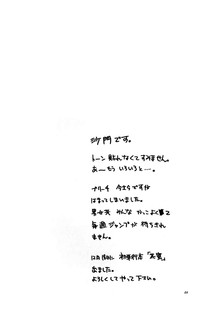 沙門です。
トーン貼れなくてすみません。
あーもういろいろと…。
ブリーチ 今さらですが
はまってしまいました。
男も女も みんな かっこよく見えて
毎週ジャンプが 待ちきれ
ません。
出ました。
よろしくしてやって下さい。